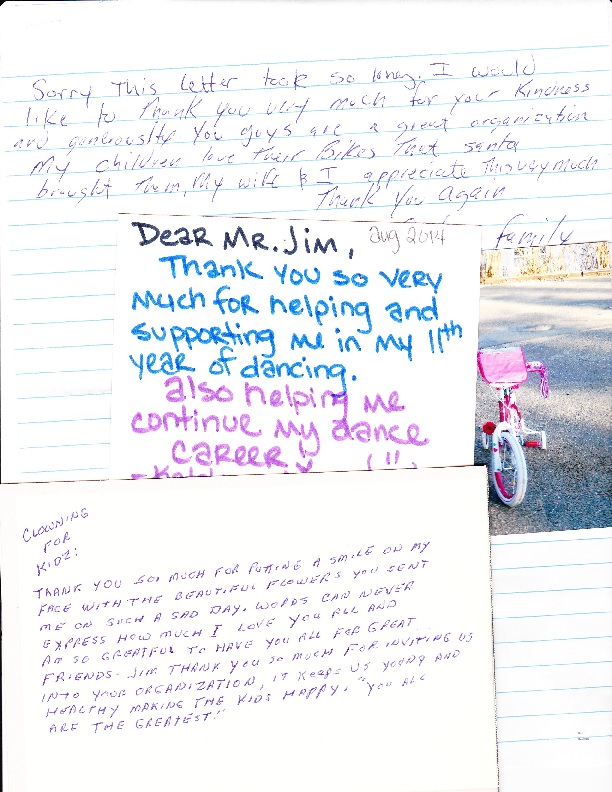 Sorry This letter took so long. I would
like to thank you very much for your Kindness
and generouslty You guys are a great organization
My children love Their Bikes That santa
brought Them, My wife & I appreciate This very much
Thank You Again
family
Dear Mr. Jim,
aug 2014
Thank you so very
much for helping and
supporting me in my 11th
year of dancing.
also helping me
continue my dance
career!
CLOWNING
FOR
KIDZ:
THANK YOU SO MUCH FOR PUTTING A SMILE ON MY
FACE WITH THE BEAUTIFUL FLOWERS YOU SENT
ME ON SUCH A SAD DAY. WORDS CAN NEVER
EXPRESS HOW MUCH I LOVE YOU ALL AND
AM SO GREATFUL TO HAVE YOU ALL FOR GREAT
FRIENDS. JIM THANK YOU SO MUCH FOR INVITING US
INTO YOUR ORGANIZATION, IT KEEPS US YOUNG AND
HEALTHY MAKING THE KIDS HAPPY. "YOU ALL
ARE THE GREATEST!"